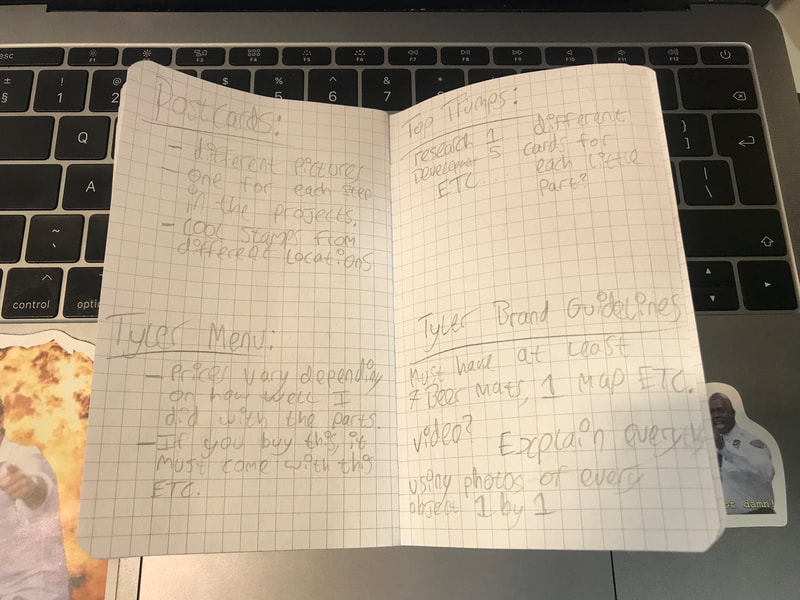 Postcards:
- different pictures
one for each step
in the projects.
- cool stamps from
different locations
Tyler Menu:
- Prices vary depending
on how well I
did with the parts.
- If you buy this, it
must come with this
ETC.
Top Trumps:
research 1
Development 5
ETC.
different
cards for
each little
part?
Tyler Brand Guidelines
Must have at least
7 Beer mats, 1 map ETC.
video? Explain every
using photos of every
object 1 by 1
esc
F1
F2
F3
F4
F5
F6
F7
F8
F9
F10
F11
F12
±
§
!
1
2
$
%
5
^
6
&
7
*
Q
A
~
`
control
}
]
|
\
damn!